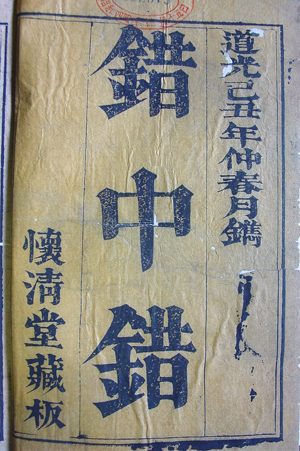 道光己丑年仲春月鐫
錯中錯
懷清堂藏板